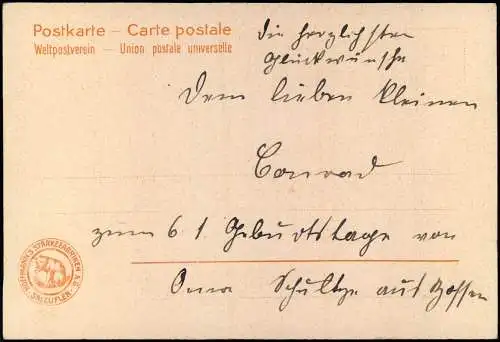 Postkarte – Carte postale
Weltpostverein – Union postale universelle
die herzlichsten
Glückwünsche
Dem lieben kleinen
Conrad
zum 6 1. Geburtstage von
Oma Schultze aus Zossen
HOFFMANN'S STÄRKEFABRIKEN A.G.
SALZUFLEN